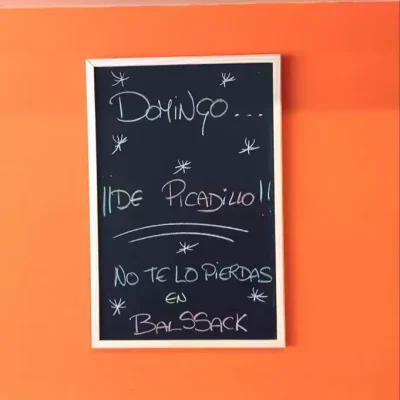 DOMINGO...
!!DE PICADILLO!!
NO TE LO PIERDAS
EN
BALSSACK